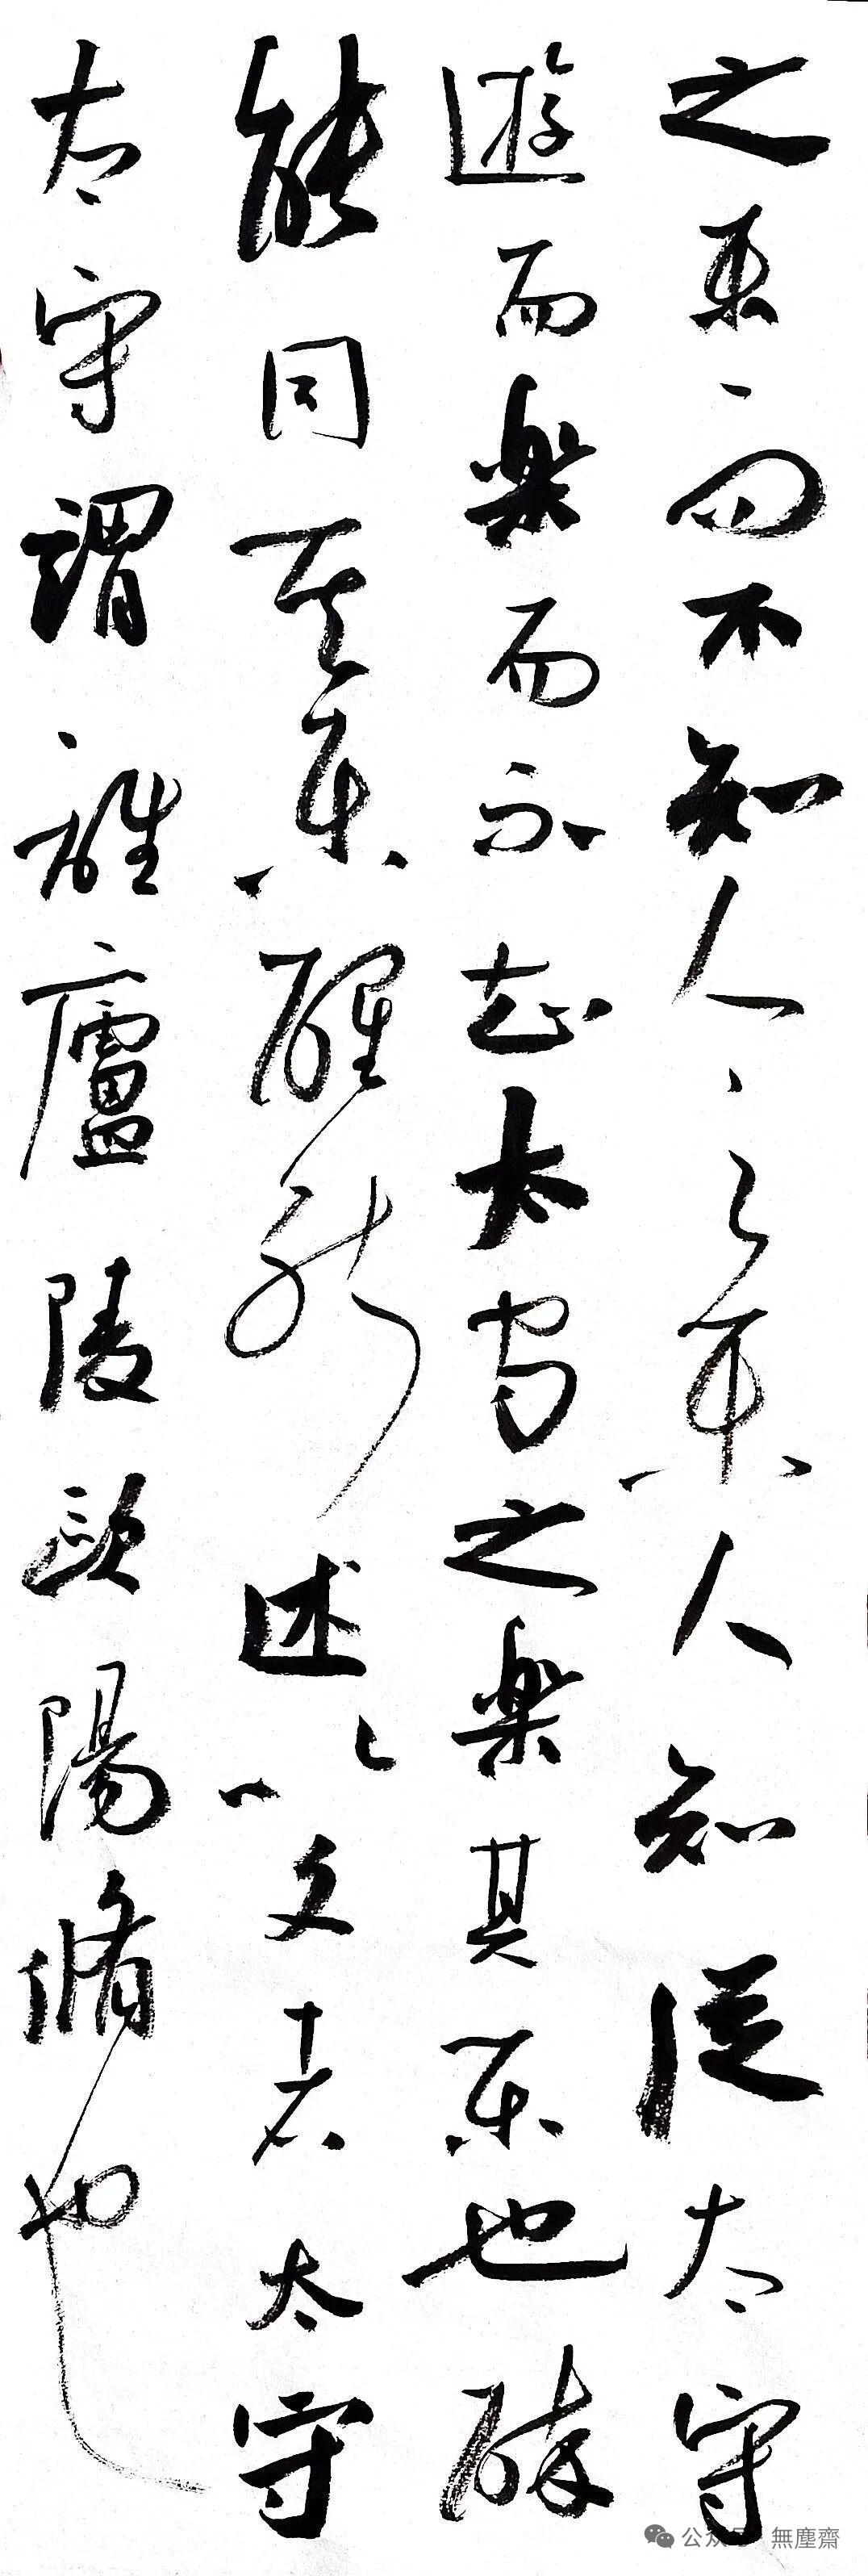 之樂而不知人之樂人知從太守
遊而樂而不知太守之樂其樂也醉
能同其樂醒能述以文者太守
太守謂誰廬陵歐陽脩也
公众号 · 無塵齋